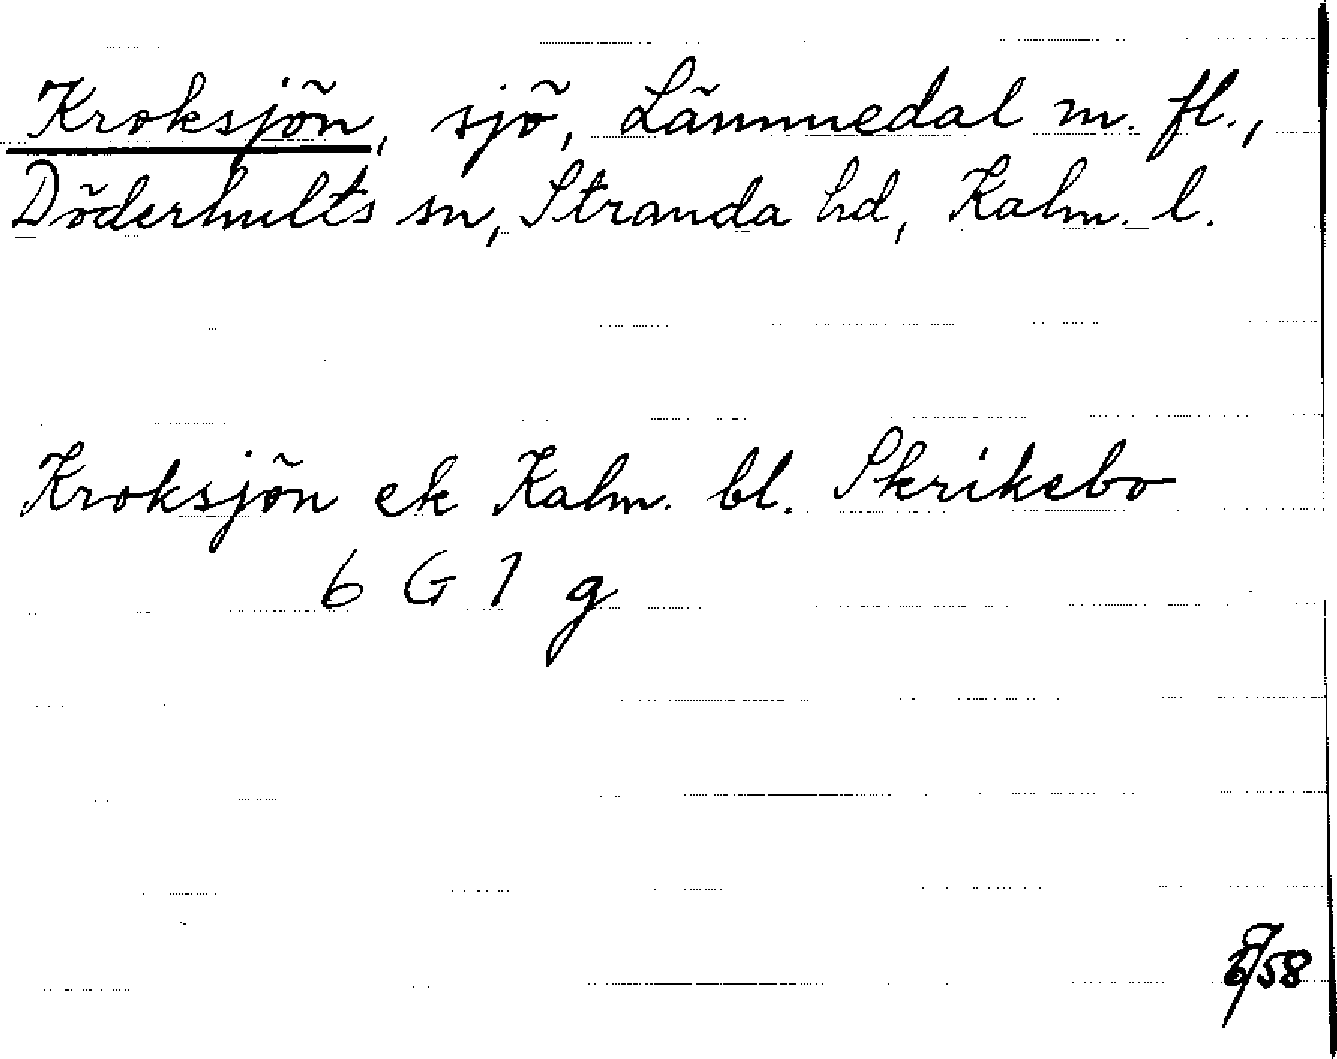 Kroksjön, sjö, Lämmedal m. fl.,
Döderhults sn, Stranda hd, Kalm. l.
Kroksjön ek Kalm. bl. Skrikebo
6 G 1 g